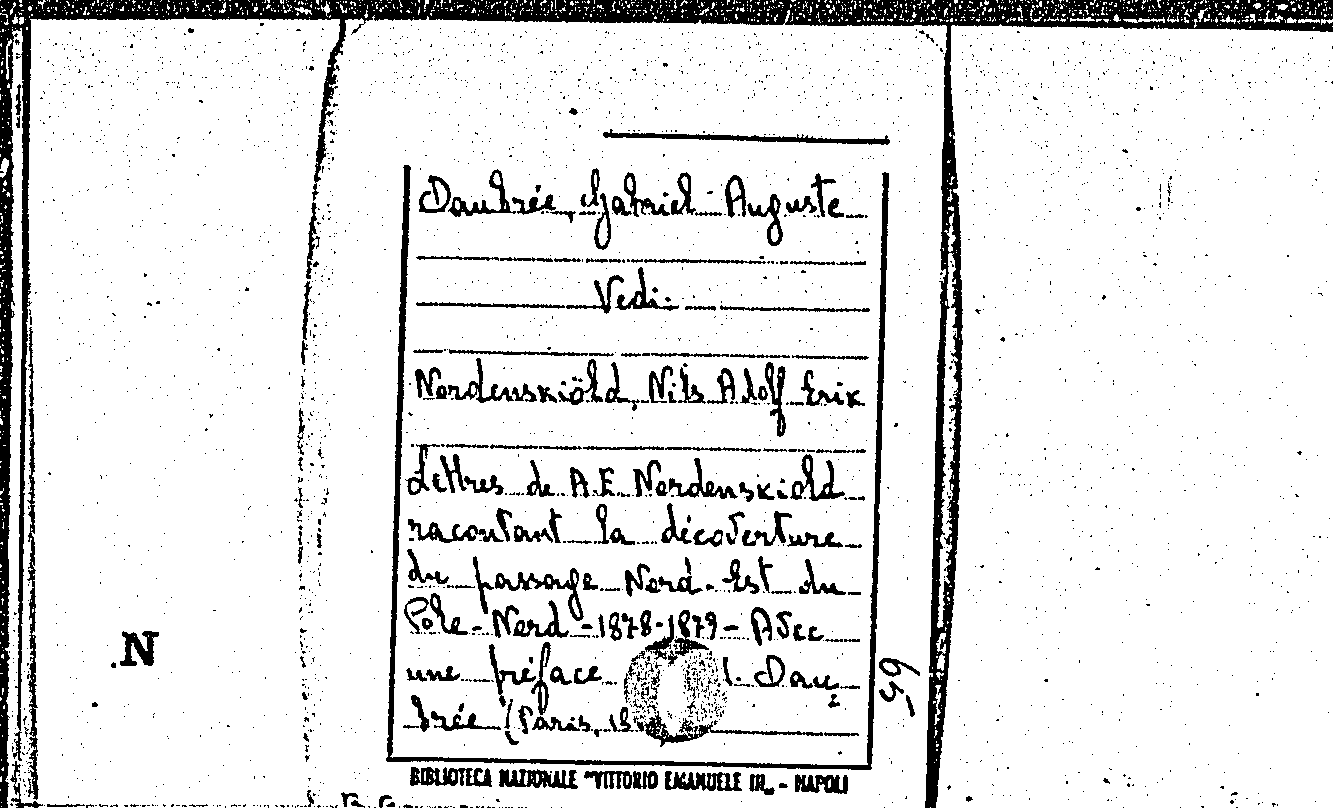 Daubrée, Gabriel-Auguste
Vedi:
Nordenskiöld, Nils Adolf Erik
Lettres de A.E. Nordenskiold
racontant la décoverture
du passage Nord-Est du
Pôle-Nord-1878-1879- Avec
une préface l. Dau=
brée (Paris,
N
59
BIBLIOTECA NAZIONALE "VITTORIO EMANUELE III" - NAPOLI